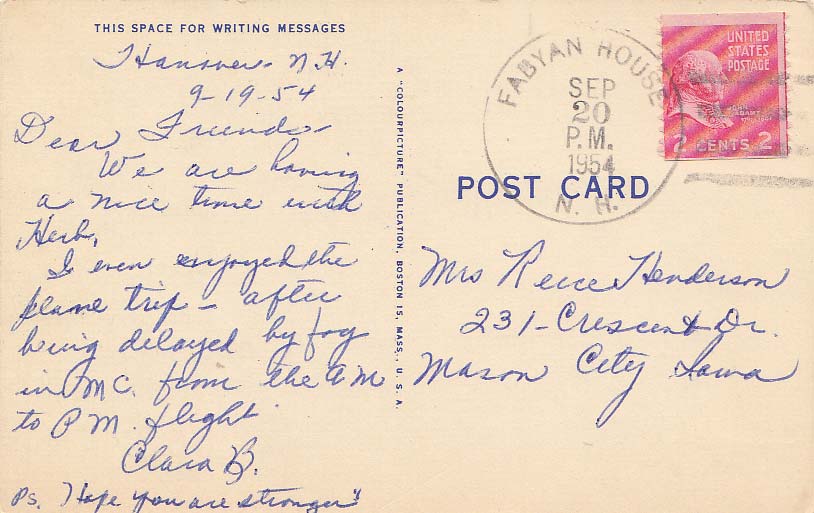 THIS SPACE FOR WRITING MESSAGES
Hanover N.H.
9-19-54
Dear Friends-
We are having
a nice time with
Herb.
I even enjoyed the
plane trip - after
being delayed by fog
in M C. from the AM
to P M. flight.
Clara B.
Ps. Hope you are stronger"
A "COLOURPICTURE" PUBLICATION, BOSTON 15, MASS., U.S.A.
FABYAN HOUSE
SEP
20
P.M.
1954
N. H.
UNITED
STATES
POSTAGE
JOHN
ADAMS
2 CENTS 2
POST CARD
Mrs Reece Henderson
231-Crescent Dr.
Mason City Iowa